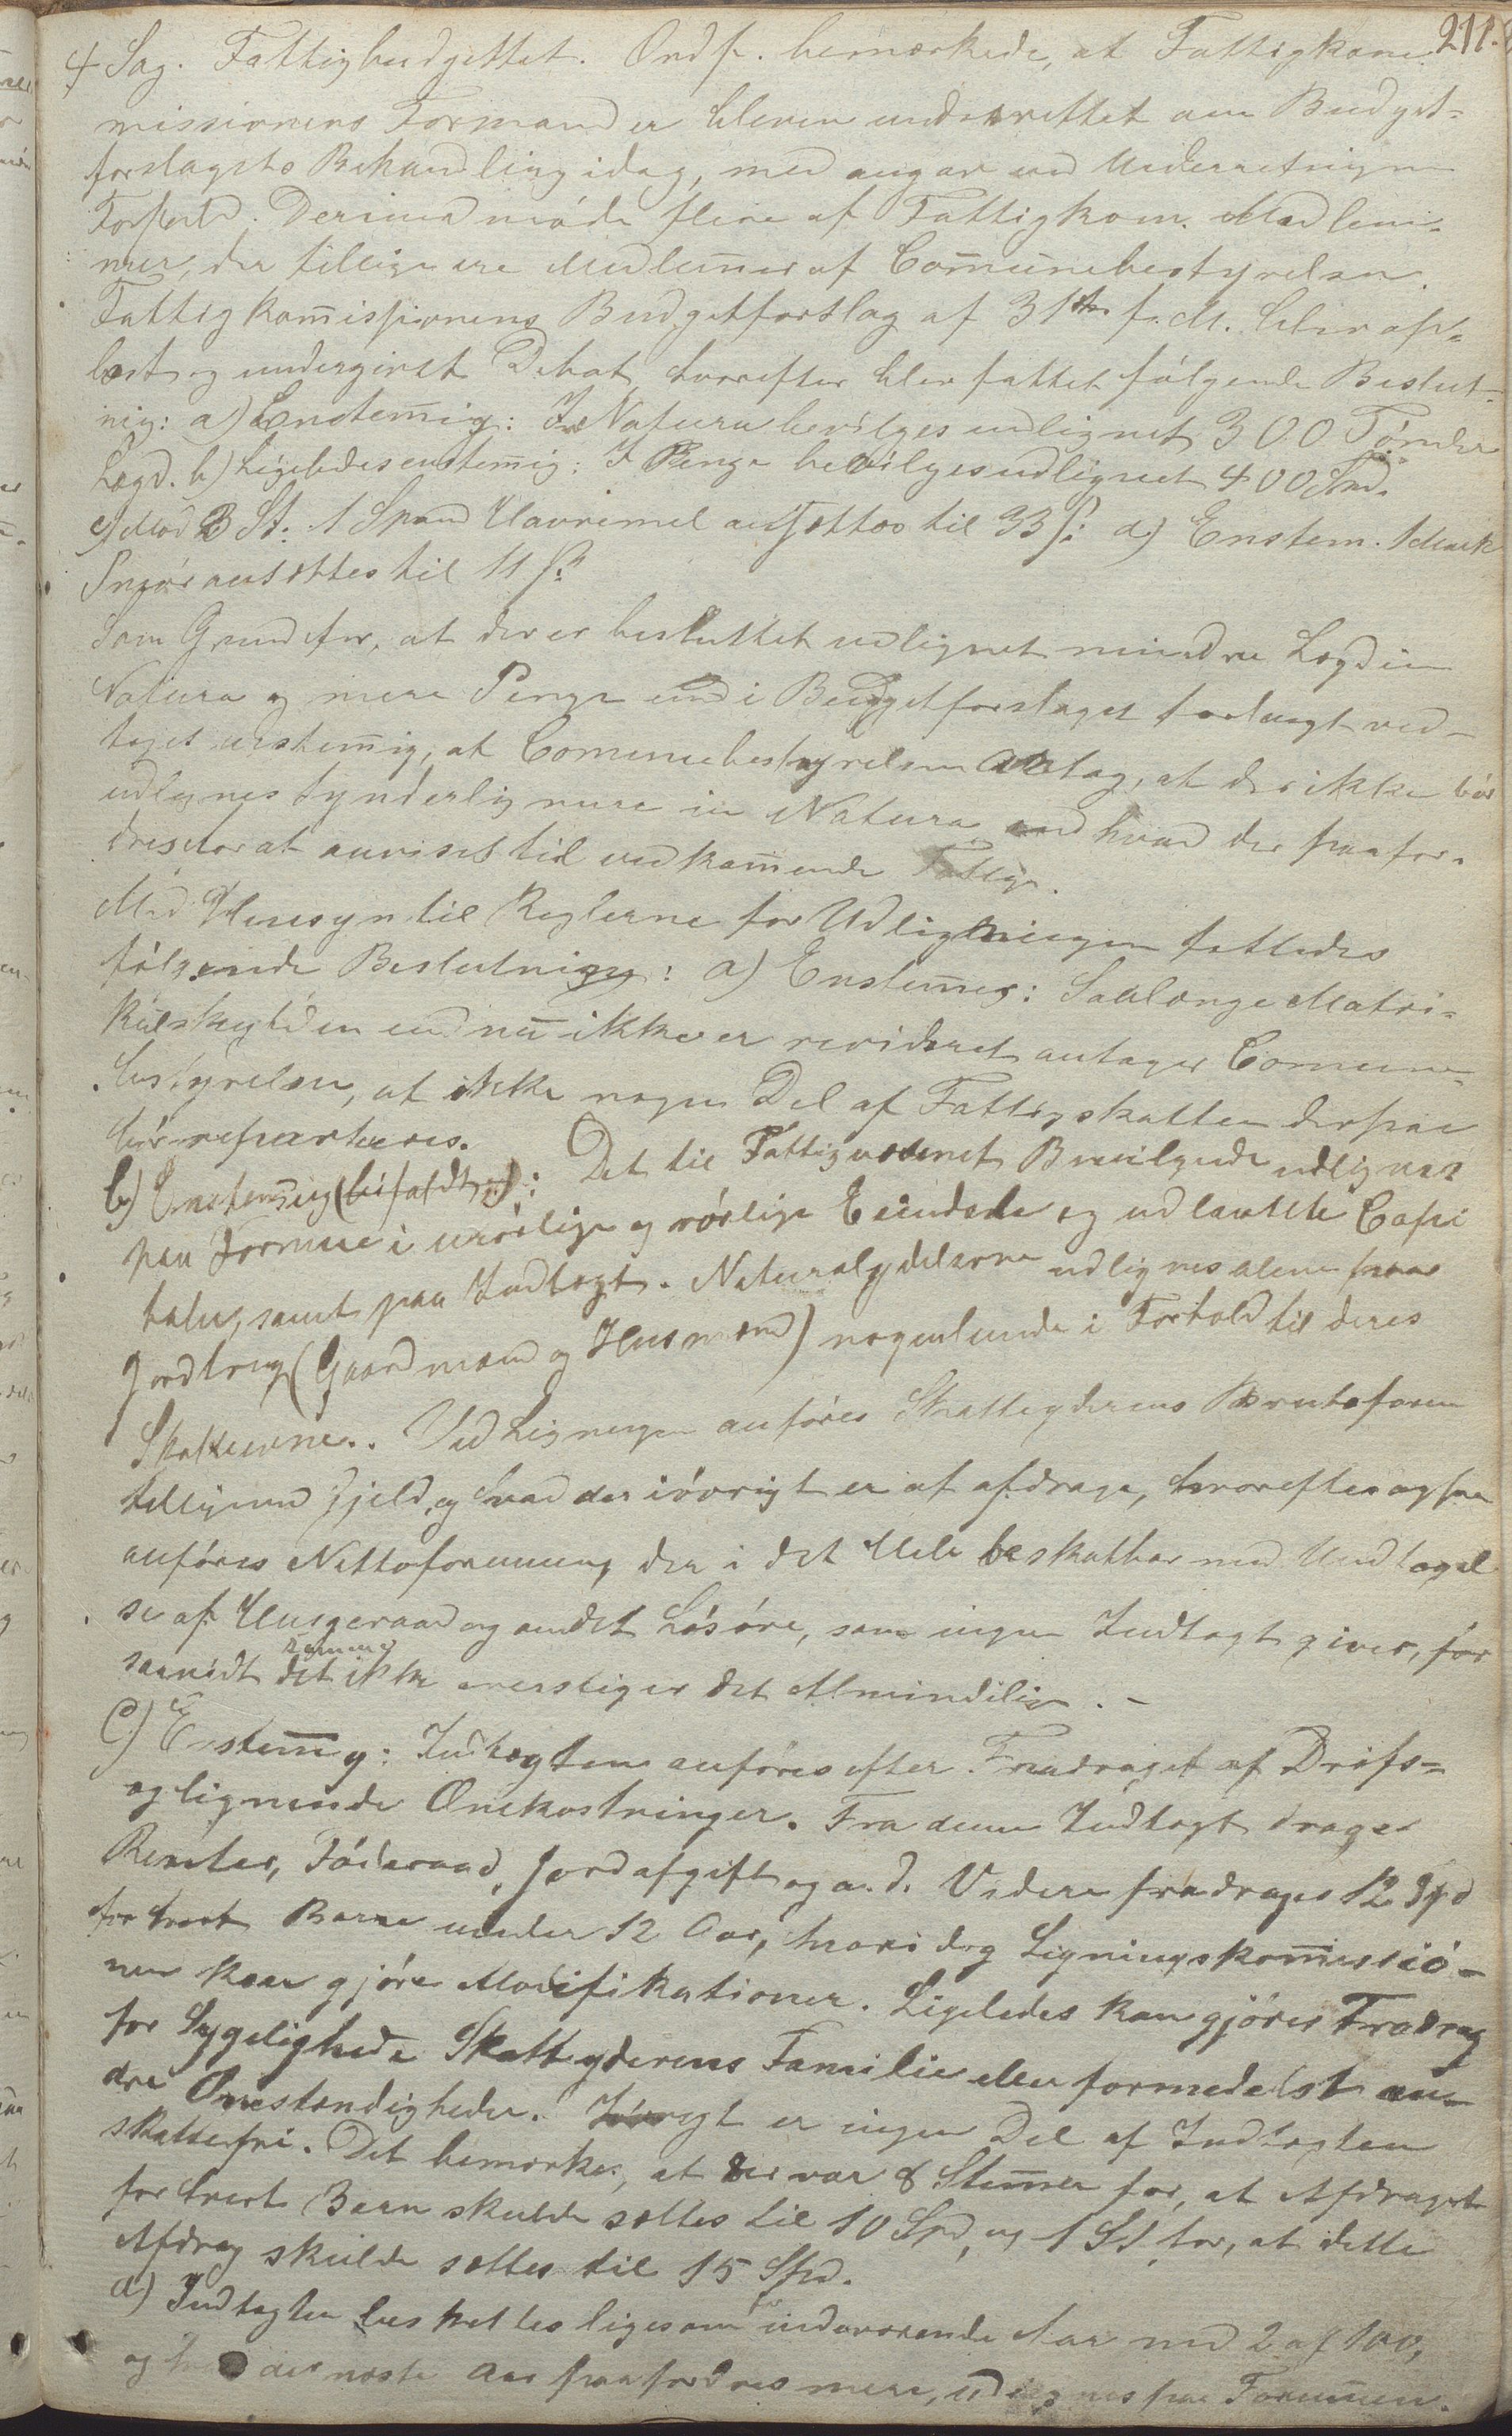 211.
4 Sag. Fattigbudgettet. Ordf. bemærkede, at Fattigkom-
missionens Formand er bleven underrettet om Budget-
forslagets Behandling idag, men angav ved Underretningen
Forfald. Derimod møde flere af Fattigkom. Medlem-
mer, der tillige ere Medlem̄er af Com̄unebestyrelsen.
Fattigkom̄issionens Budgetforslag af 31te f. M. blev op-
læst og undergivet Debat, hvorefter blev fattet følgende Beslut-
nig: a) Enstem̄ig: In Natura bevilges udlignet 300 Tønder
Lægd. b) Ligeledes enstem̄ig: I Penge bevilges udlignet 400 Spd.
c) Mod 3 St. 1 Spand Havremel ansættes til 33 s: d) Enstem. 1 Mark
Smør ansættes til 11 s:
Som Grund for, at der er besluttet udlignet mindre Lægd in
Natura og mere Penge end i Budgetforslaget foreslagt ved-
toges enstem̄ig, at Communebestyrelsen antog, at der ikke bør
udlignes synderlig mere in Natura end hvad der paafor-
dres for at anvises til vedkom̄ende Fattige.
Med Hensyn til Reglerne for Udligningen fattedes
følgende Beslutning: a) Enstem̄ig: Saalænge Matri-
kulskylden endnu ikke er revideret antager Commune-
bestyrelsen, at ikke nogen Del af Fattigskatten derpaa
bør reparteres.
b) Enstem̄ig (bifaldt): Det til Fattigvæsenet Bevilgede udlignes
paa Formue i urørlige og rørlige Eiendele og udlaante Capi
taler, samt paa Indtægt. Naturalydelserne udlignes alene paa
Jordbrug (Gaardmænd og Husmænd) nogenlunde i Forhold til deres
Skatteevne.. Ved Ligningen anføres Skatteyderens Bruttoformue
tilligemed Gjeld, og hvad der iøvrigt er at afdrage, hvorefter ogsaa
anføres Nettoformuen, der i det Hele beskattes med Undtagel
se af Husgeraad og andet Løsøre, som ingen Indtægt giver, for
saavidt det samme ikke overstiger det Almindelige. –
C) Enstem̄ig: Indtægten anføres efter Fradraget af Drifs-
og lignende Omkostninger. Fra denne Indtægt drages
Renter, Föderaad, Jordafgift og a. d. Videre fradrages 12 Spd
for hvert Barn under 12 Aar, hvori dog Ligningskom̄issió-
nen kan gjøre Modifikationer. Ligeledes kan gjøres Fradrag
for Sygelighed i Skatteyderens Familie eller formedelst an-
dre Omstændigheder. Iøvrigt er ingen Del af Indtægten
skattefri. Det bemærkes, at der var 8 Stem̄er for, at Afdraget
for hvert Barn skulde sættes til 10 Spd, og 1 St. for, at dette
Afdrag skulde sættes til 15 Spd.
d) Indtægten beskattes ligesom for indeværende Aar med 2 af 100,
og der næste Aar paafordres mere, udlignes paa Formuen.